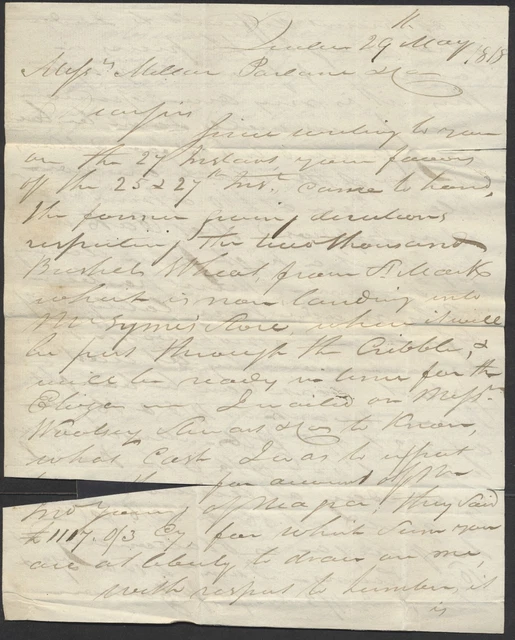 Quebec 29 May 1818
Messrs Millar Parlane & Co
Since writing to you
on the 27 Instant your favors
of the 25 & 27th Inst. came to hand,
the former giving directions
respecting the two thousand
Bushels Wheat, from St Marks
which is now landing into
Mr Symes Store, when it will
be put through the Cribble, &
will be ready in time for the
Eliza I waited on Messrs
Woolsey Stewart & Co to know,
what Cash I was to expect
for account of Mr
Young of Niagara. they said
£1117.0/3 Cy, for which Sum you
are at liberty to draw on me,
with respect to lumber, it
is